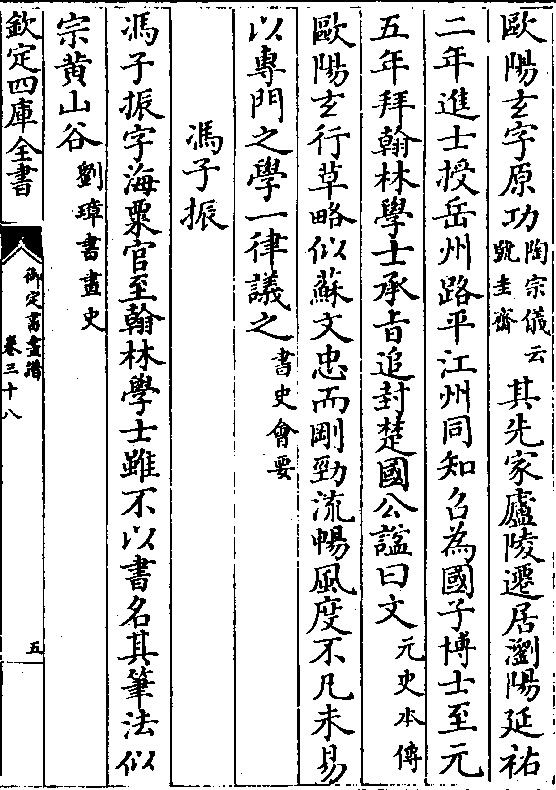 歐陽玄字原功陶宗儀云號圭齋其先家廬陵遷居瀏陽延祐
二年進士授岳州路平江州同知召為國子博士至元
五年拜翰林學士承旨追封楚國公諡曰文元史本傳
歐陽玄行草略似蘇文忠而剛勁流暢風度不凡未易
以專門之學一律議之書史會要
馮子振
馮子振字海粟官至翰林學士雖不以書名其筆法似
宗黄山谷劉璋書畫史
欽定四庫全書
御定書畫譜
卷三十八
五